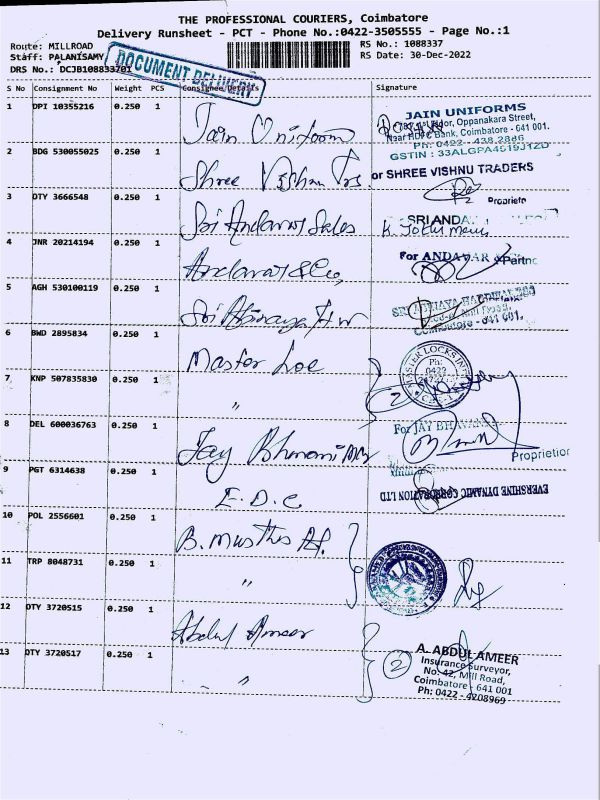 THE PROFESSIONAL COURIERS, Coimbatore
Delivery Runsheet - PCT - Phone No.:0422-3505555 - Page No.:1
Route: MILLROAD
RS No.: 1088337
Staff: PALANISAMY
RS Date: 30-Dec-2022
DRS No.: DCJB108833701
DOCUMENT DELIVERY
S No Consignment No Weight PCS Consignee/Details Signature
1 DPI 10355216 0.250 1 Jain Uniforms
JAIN UNIFORMS
Floor, Oppanakara Street,
Near HDFC Bank, Coimbatore - 641 001.
Ph: 0422 - 438 2886
GSTIN : 33ALGPA4519J1ZD
2 BDG 530055025 0.250 1 Shree Vishnu Trs
or SHREE VISHNU TRADERS
Proprieto
3 DTY 3666548 0.250 1 Sri Andavar Sales
SRI ANDA
4 JNR 20214194 0.250 1 Andavar & Co,
For ANDAVAR &
Partne
5 AGH 530100119 0.250 1 Sri Abinaya H W
Coimbatore - 641 001.
6 BWD 2895834 0.250 1 Master Loc
MASTER LOCKS
Ph:
0422
7 KNP 507835830 0.250 1 "
2
8 DEL 600036763 0.250 1 Jay Bhavani
For JAY BHAVANI
Proprietor
9 PGT 6314638 0.250 1 E.D.C
EVERSHINE DYNAMIC CORPORATION LTD
10 POL 2556601 0.250 1 B. Musthafa
11 TRP 8048731 0.250 1 "
12 DTY 3720515 0.250 1 Abdul Ameer
13 DTY 3720517 0.250 1 "
2
A. ABDUL AMEER
Insurance Surveyor,
No. 42, Mill Road,
Coimbatore - 641 001
Ph: 0422 - 4208969